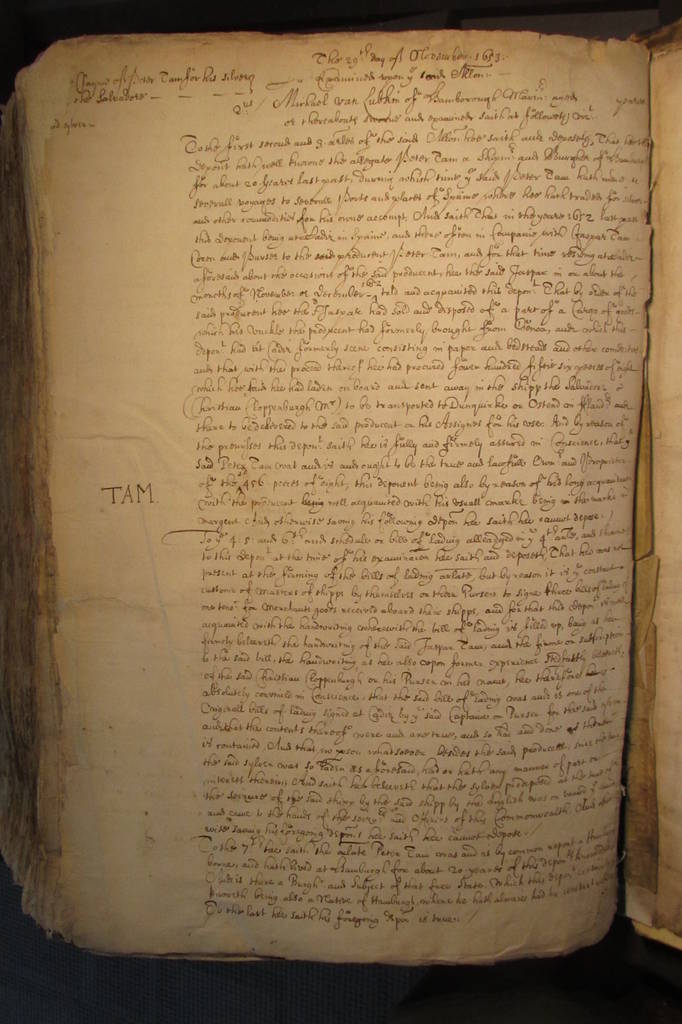 The 29th day of November 1653.
Clayme of Peter Tam for his silver in
the Salvadore
Examined upon ye said Allon.
2us Michael van Lubkin of Hamborough Marinr aged yeares
or thereabouts and examined saith as followeth, vizt.
To the first second and 3. arles of the said Allon hee saith and deposeth, That hee this
deponent hath well knowne the allegate Peter Tam a and Burgher of
for about 20 yeares last past, during which time ye said Peter Tam hath made
severall voyages to severall Ports and places of Spaine, where hee hath traded for silver
and other commodities for his owne accompt. And saith That in the yeare 1652 last past
this deponent being at Cadiz in Spaine, and there often in Companie with Jaspar Tam
and Purser to the producent Peter Tam, and for that time residing at Cadiz
aforesaid about the occasions of the said producent, hee the said Jaspar in or about the
moneths of November or December 1652 told and acquainted this depont That by order of the
said producent hee the sd Jaspar had sold and disposed of a part of a Cargo of goods
which his Unckle the producent had formerly brought from and which this
depont had at Cadiz formerly seene consisting in paper and bedsteads and other comodities
and that with the proceed thereof hee had procured fower hundred fiftie six peeces of eight
which hee said hee had laden on board and sent away in the shipp the Salvador
(Christian Cloppenburgh Mr) to be transported to Dunquirke or Ostend in Flandrs and
there to be delivered to the said producent or his Assignes for his use. And by reason of
the premisses this depont saith hee is fully and firmely assured in Conscience, that ye
said Peter Tam was and is and ought to be the true and lawfull Ownr and Proprietor
of the sd 456 peeces of eight, this deponent being also by reason of his long acquaintance
with the producent being well acquainted with his usuall marke being in the marke in
margent. And otherwise saving his following depon hee saith hee cannot depose.
TAM.
To ye 4. 5. and 6th and schedule or bill of lading alleadged in ye 4th arle, and shewed
to this depont at the time of his examination hee saith and deposeth That hee was not
present at the signing of the bills of lading arlate, but by reason it is ye constant
custome of Masters of shipps by themselves or their Pursers to signe three bills of lading of
one tenor for Merchants goods received aboard their shipps, and for that this depont is well
acquainted with the handwriting wherewith the bill of lading is filled up, being as hee
firmely beleeveth the handwriting of the said Jaspar Tam, and the firme or subscription
to the said bill, the handwriting, as hee also upon former experience stedfastly beleeveth,
of the said Christian Cloppenburgh or his Purser in his name, hee therefore
absolutely in Conscience, that the said bill of lading was and is one of the
Originall bills of lading signed at Cadiz by ye said Captaine or Purser for the said silver
and that the contents thereof were and are true, and so had and done as therein
is contained. And that no person whatsoever besides the said producent, since
the said sylver was so laden as aforesaid, had or hath any manner of part or
interest therein. And saith hee beleeveth that the sylver at the time of
the seizure of the said shipp by the said shipp by the English was on board ye same
and came to the hands of the and Officers of this Commonwealth. And other
wise saving his foregoing depon hee saith hee cannot depose.
To the 7th hee saith the arlate Peter Tam was and is by common repute a Hamburger
borne, and hath lived at Hamburgh for about 20 yeares of this deponts knowledge
And is there a Burghr and Subject of that free State. Which this depont
knoweth being also a Native of Hamburgh, where he hath alwaies had his
To the last hee saith his foregoing depon is true.